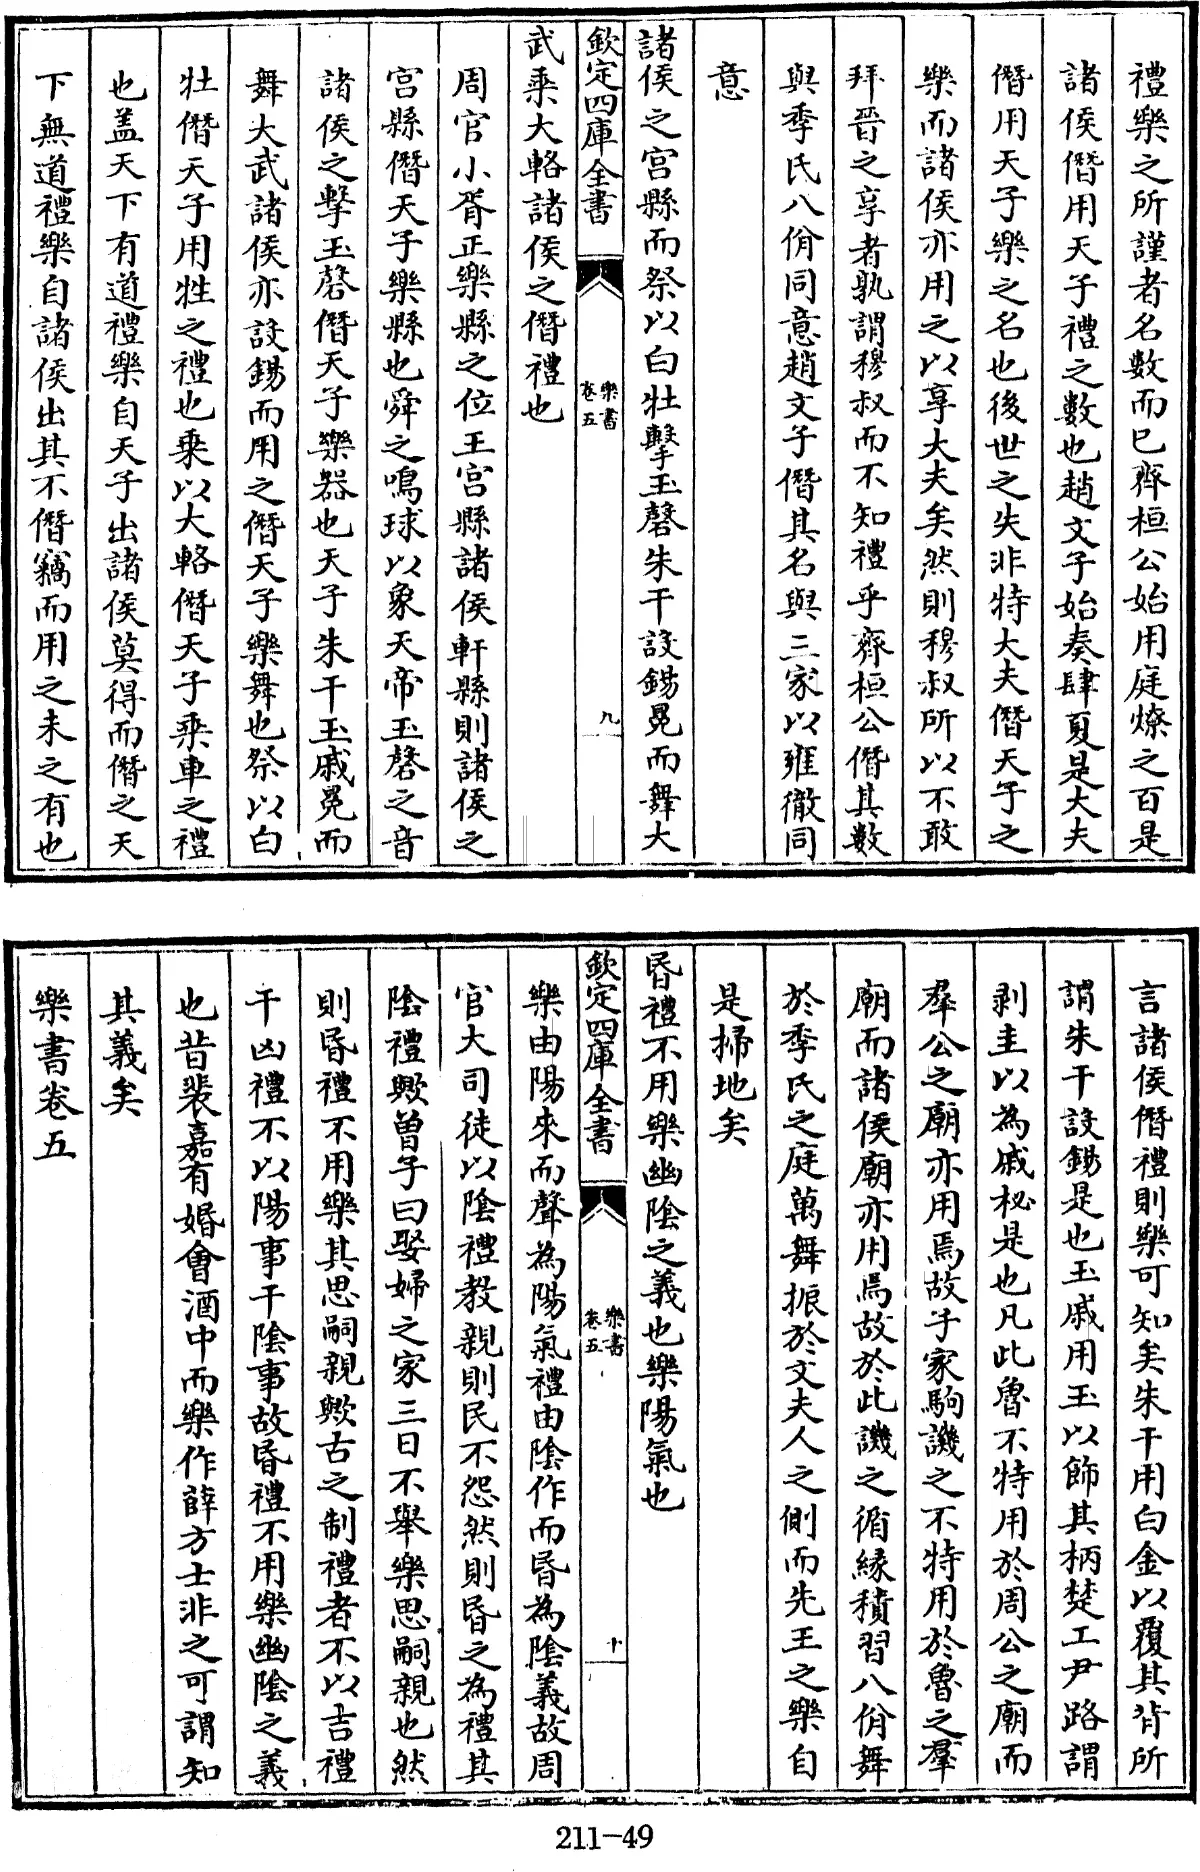 禮樂之所謹者名數而已齊桓公始用庭燎之百是
諸侯僭用天子禮之數也趙文子始奏肆夏是大夫
僭用天子樂之名也後世之失非特大夫僭天子之
樂而諸侯亦用之以享大夫矣然則穆叔所以不敢
拜晉之享者孰謂穆叔而不知禮乎齊桓公僭其數
與季氏八佾同意趙文子僭其名與三家以雍徹同
意
諸侯之宫縣而祭以白牡擊玉磬朱干設錫冕而舞大
欽定四庫全書
樂書
卷五
九
武乗大輅諸侯之僭禮也
周官小胥正樂縣之位王宫縣諸侯軒縣則諸侯之
宫縣僭天子樂縣也舜之鳴球以象天帝玉磬之音
諸侯之擊玉磬僭天子樂器也天子朱干玉戚冕而
舞大武諸侯亦設錫而用之僭天子樂舞也祭以白
牡僭天子用牲之禮也乗以大輅僭天子乗車之禮
也盖天下有道禮樂自天子出諸侯莫得而僭之天
下無道禮樂自諸侯出其不僭竊而用之未之有也
言諸侯僭禮則樂可知矣朱干用白金以覆其背所
謂朱干設錫是也玉戚用玉以飾其柄楚工尹路謂
剥圭以為戚柲是也凡此魯不特用於周公之廟而
羣公之廟亦用焉故子家駒譏之不特用於魯之羣
廟而諸侯廟亦用焉故於此譏之循緣積習八佾舞
於季氏之庭萬舞振於文夫人之側而先王之樂自
是掃地矣
昏禮不用樂幽陰之義也樂陽氣也
欽定四庫全書
樂書
卷五
十
樂由陽來而聲為陽氣禮由陰作而昏為陰義故周
官大司徒以陰禮教親則民不怨然則昏之為禮其
陰禮歟曾子曰娶婦之家三日不舉樂思嗣親也然
則昏禮不用樂其思嗣親歟古之制禮者不以吉禮
干凶禮不以陽事干陰事故昏禮不用樂幽陰之義
也昔裴嘉有婚會酒中而樂作薛方士非之可謂知
其義矣
樂書卷五
211-49